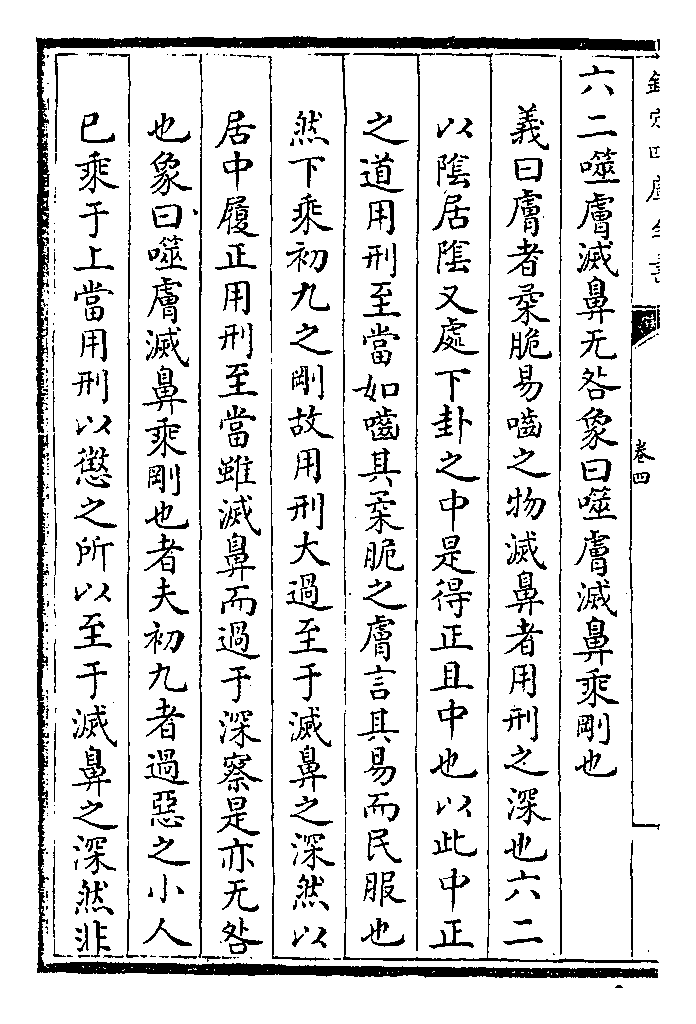 欽定四庫全書
卷四
六二噬膚滅鼻无咎象曰噬膚滅鼻乘剛也
義曰膚者柔脆易噛之物滅鼻者用刑之深也六二
以隂居隂又處下卦之中是得正且中也以此中正
之道用刑至當如噛其柔脆之膚言其易而民服也
然下乘初九之剛故用刑大過至于滅鼻之深然以
居中履正用刑至當雖滅鼻而過于深察是亦无咎
也象曰噬膚滅鼻乘剛也者夫初九者過惡之小人
已乘于上當用刑以懲之所以至于滅鼻之深然非